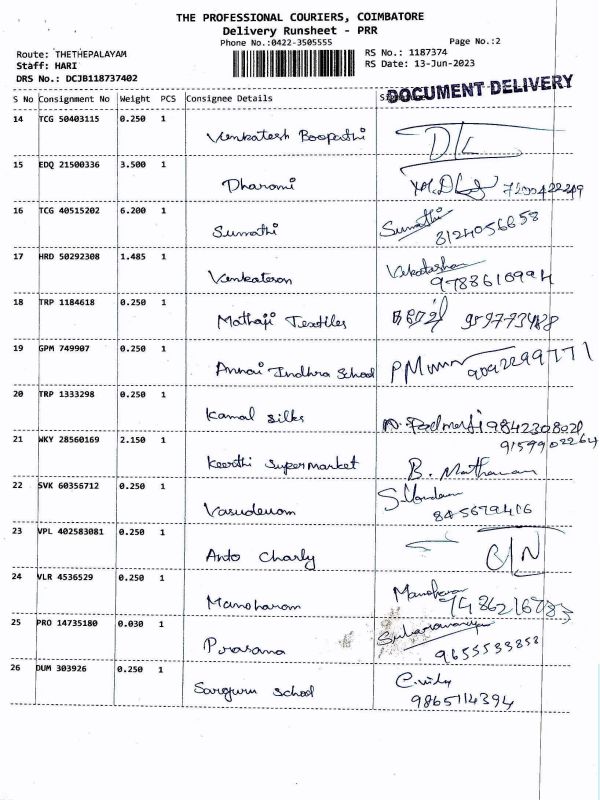 THE PROFESSIONAL COURIERS, COIMBATORE
Delivery Runsheet - PRR
Phone No.:0422-3505555 Page No.:2
Route: THETHEPALAYAM RS No.: 1187374
Staff: HARI RS Date: 13-Jun-2023
DRS No.: DCJB118737402
DOCUMENT DELIVERY
S No Consignment No Weight PCS Consignee Details
14 TCG 50403115 0.250 1
Venkatesh Boopathi
15 EDQ 21500336 3.500 1
Dharani
16 TCG 40515202 6.200 1
Sumathi Sumathi
8124056658
17 HRD 50292308 1.485 1
Venkatesan
9788610994
18 TRP 1184618 0.250 1
Mathaji Textiles
19 GPM 749907 0.250 1
Annai Indhra School 9092299771
20 TRP 1333298 0.250 1
Kamal Silks
21 WKY 28560169 2.150 1 9159902264
Keerthi Supermarket B.
22 SVK 60356712 0.250 1
Vasudevan
23 VPL 402583081 0.250 1
Anto Charly
24 VLR 4536529 0.250 1
Manoharan
25 PRO 14735180 0.030 1
Prasana
26 DUM 303926 0.250 1
Sarguru School
9865114394